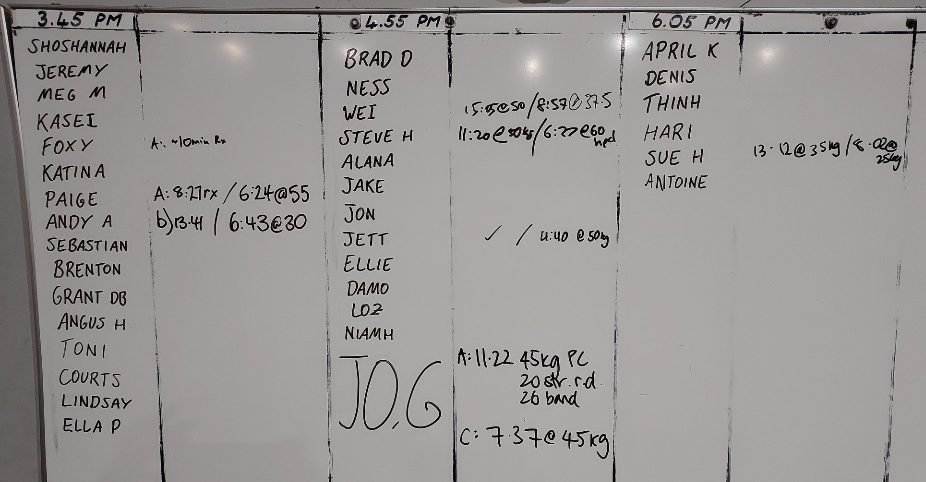 3.45 PM
SHOSHANNAH
JEREMY
MEG M
KASEI
FOXY A: ~10min Rx
KATINA
PAIGE A: 8:27rx / 6:24@55
ANDY A b) 13:41 / 6:43@30
SEBASTIAN
BRENTON
GRANT DB
ANGUS H
TONI
COURTS
LINDSAY
ELLA P
4.55 PM
BRAD D
NESS
WEI @50 / 8:57@37.5
STEVE H 11:20 @ / 6:27@60
ALANA
JAKE
JON
JETT ✓ / 4:40 @50kg
ELLIE
DAMO
LOZ
NIAMH
JO.G A: 11.22 45kg PC
20 str. rd.
26 band
C: 7.37@45kg
6.05 PM
APRIL K
DENIS
THINH
HARI
SUE H 13.12@35kg / 8.02@
25kg
ANTOINE